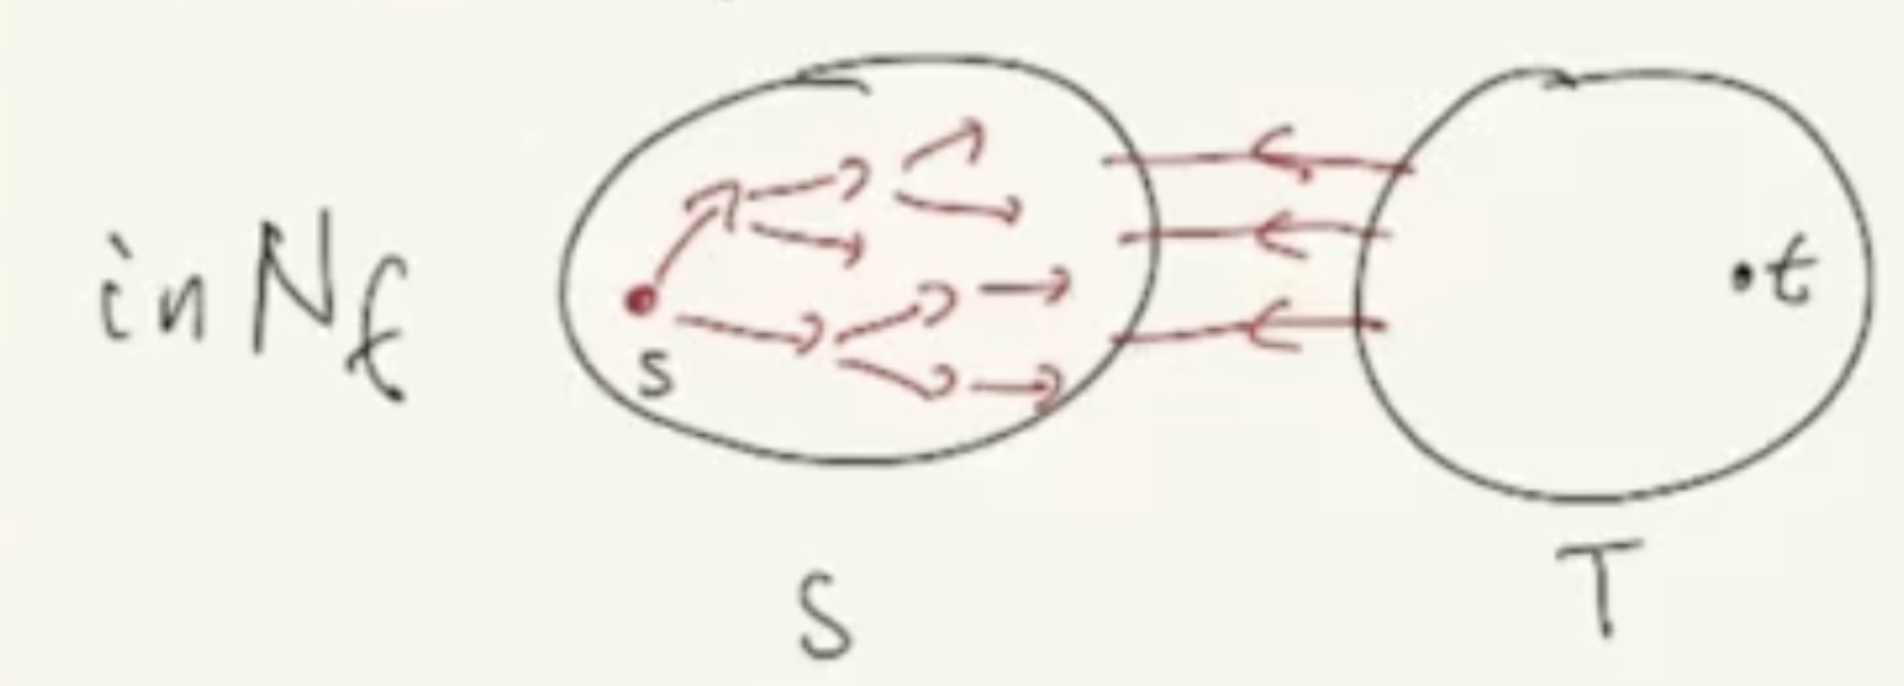 in N_f
s
t
S
T